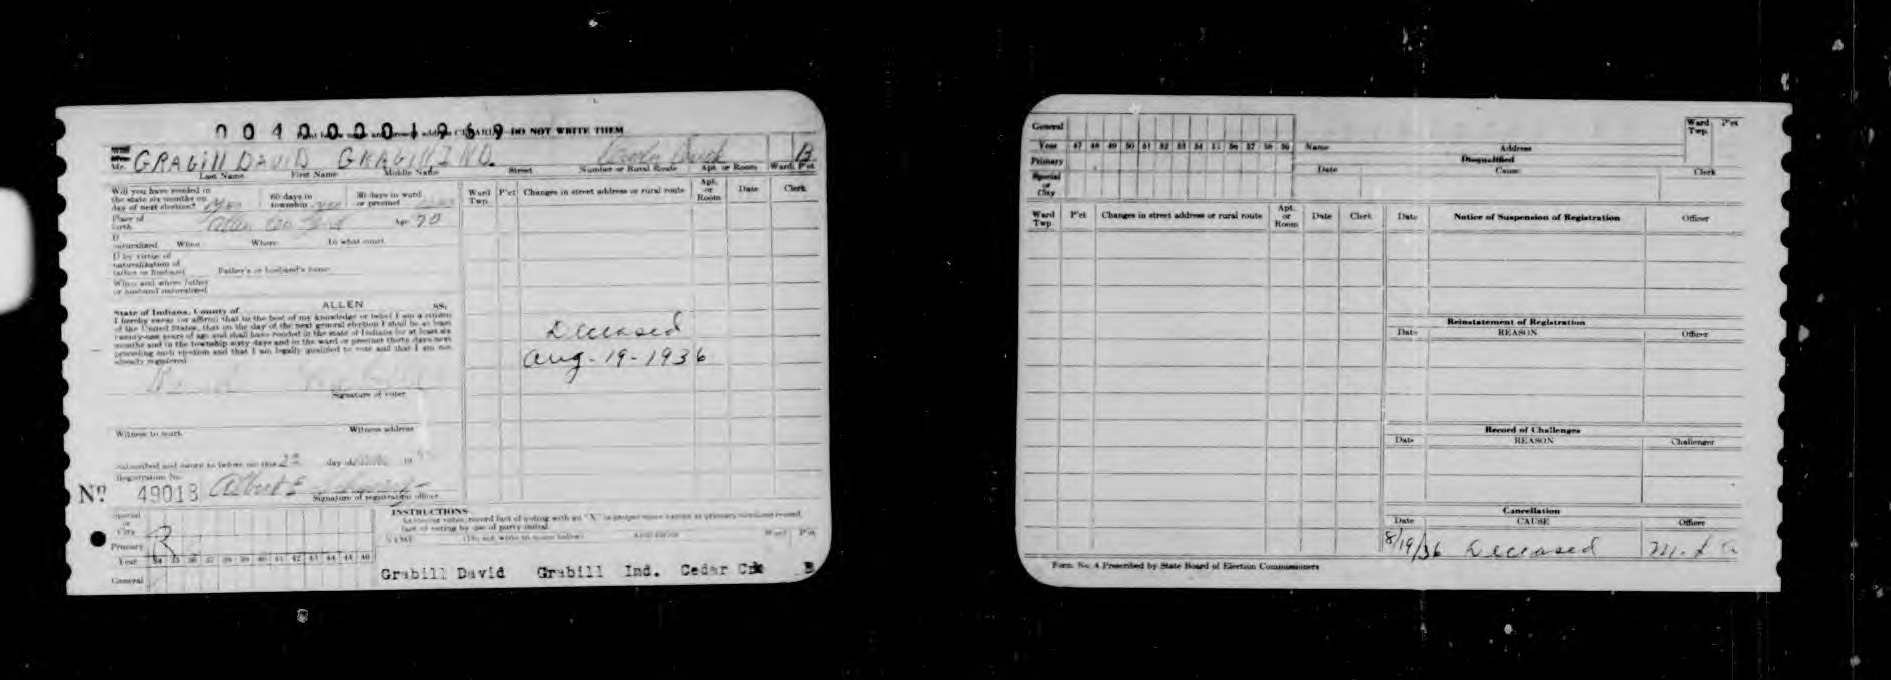 0040001969
DO NOT WRITE THEM
Mr. GRABIll DAVID GRABILL IND. B
Last Name First Name Middle Name Street Number or Rural Route Apt. or Room Ward P'ct
Will you have resided in
the state six months on 60 days in 30 days in ward
day of next election? Yes township yes or precinct
Place of
birth Allen Co Ind Age 70
If
naturalized When Where In what court
If by virtue of
naturalization of
father or husband Father's or husband's name
When and where father
or husband naturalized
State of Indiana, County of ALLEN SS:
I hereby swear (or affirm) that to the best of my knowledge or belief I am a citizen
of the United States, that on the day of the next general election I shall be at least
twenty-one years of age and shall have resided in the state of Indiana for at least six
months and in the township sixty days and in the ward or precinct thirty days next
preceding such election and that I am legally qualified to vote and that I am not
already registered
Signature of voter
Witness to mark Witness address
Subscribed and sworn to before me this day of 19
Registration No.
No. 49013 Albert E
Signature of registration officer
Ward Twp. P'ct Changes in street address or rural route Apt. or Room Date Clerk
Deceased
Aug-19-1936
Special
or
City
Primary R
Year 34 35 36 37 38 39 40 41 42 43 44 45 46
General
INSTRUCTIONS
NAME (Do not write in space below) ADDRESS Ward P'ct
Grabill David Grabill Ind. Cedar Crk B
General
Year 47 48 49 50 51 52 53 54 55 56 57 58 59
Primary
Special
or
City
Name Address
Ward Twp. P'ct
Disqualified
Date Cause Clerk
Ward Twp. P'ct Changes in street address or rural route Apt. or Room Date Clerk
Date Notice of Suspension of Registration Officer
Reinstatement of Registration
Date REASON Officer
Record of Challenges
Date REASON Challenger
Cancellation
Date CAUSE Officer
8/19/36 Deceased
Form No. 4 Prescribed by State Board of Election Commissioners